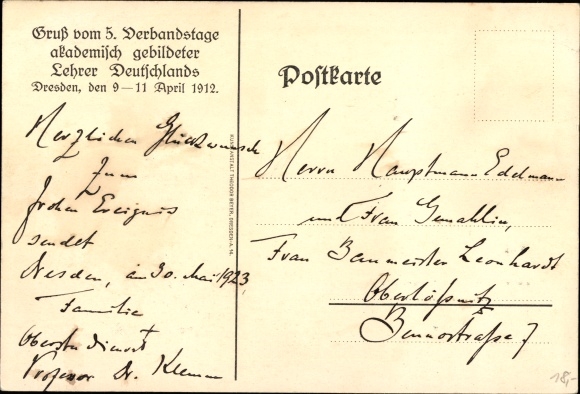 Gruß vom 5. Verbandstage
akademisch gebildeter
Lehrer Deutschlands
Dresden, den 9–11 April 1912.
Herzlichen Glückwunsch
zum
frohen Ereignis
sendet
Dresden, am 30. Mai 1923,
Familie
Professor Dr. Klemm
KUNSTANSTALT THEODOR BEYER, DRESDEN-A. 14.
Postkarte
Herrn Hauptmann Edelmann
und Frau Gemahlin,
Frau Baumeister Leonhardt
Oberlößnitz
Bennostraße 7
18,-